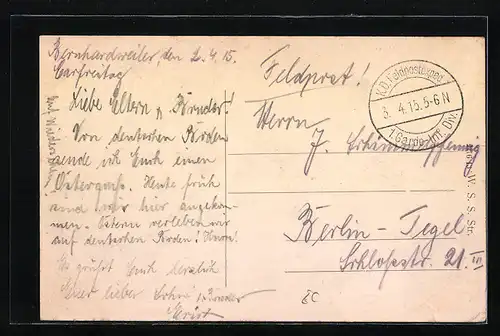 Bernhardweiler, den 2.4.15.
Carfreitag
Liebe Eltern u. Brüder!
Von deutschem Boden
sende ich Euch einen
Ostergruß. Heute früh
sind wir hier angekom-
men. Ostern verleben wir
auf deutschem Boden! Hurra!
Es grüßt Euch herzlich
Euer lieber Sohn u. Bruder
Auf Wiedersehen!
Feldpost!
K.D. Feldpostexped.
3. 4.15. 5-6 N
1. Garde-Inf. Div.
Herrn
J.
Berlin - Tegel
Schloßstr. 21. III
W. S. s. St.